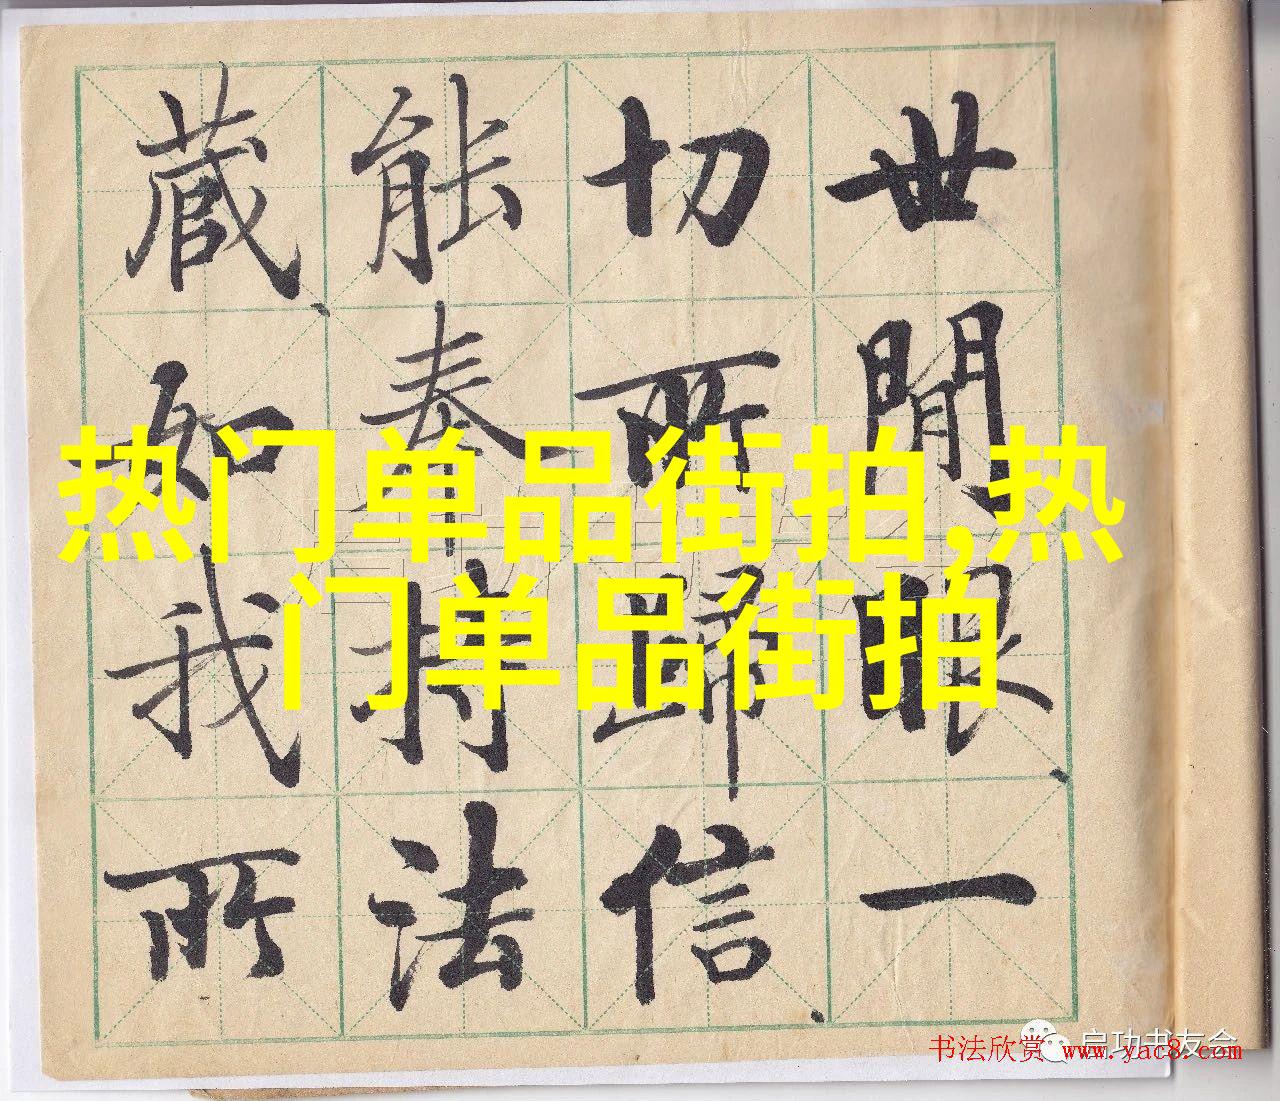 世閒眼一
切所歸信
能奉持法
藏如我所
热门单品街拍,热
门单品街拍
启功书友会
书法欣赏 www.yac8.com